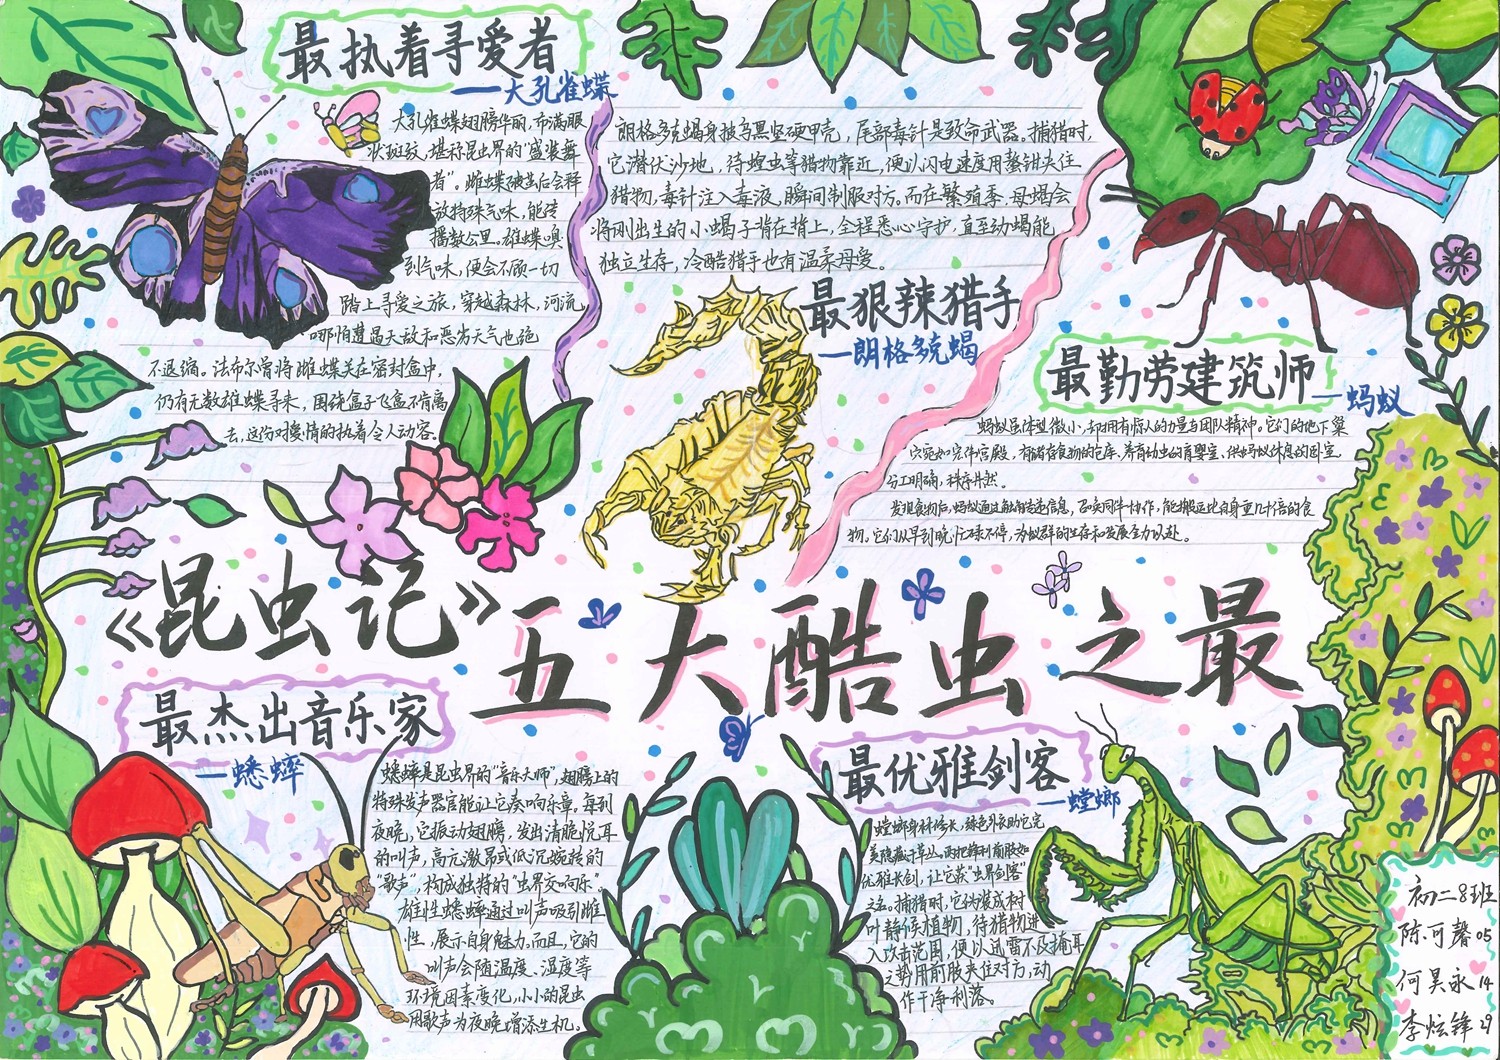 最执着寻爱者
——大孔雀蝶
大孔雀蝶翅膀华丽,布满眼
状斑纹,堪称昆虫界的“盛装舞
者”。雌蝶破茧后会释
放特殊气味,能传
播数公里。雄蝶嗅
到气味,便会不顾一切
踏上寻爱之旅,穿越森林,河流,
哪怕遭遇天敌和恶劣天气也绝
不退缩。法布尔曾将雌蝶关在密封盒中,
仍有无数雄蝶寻来,围绕盒子飞舞不肯离
去,这份对爱情的执着令人动容。
朗格多克蝎身披乌黑坚硬甲壳,尾部毒针是致命武器。捕猎时,
它潜伏沙地,待蝗虫等猎物靠近,便以闪电速度用螯钳夹住
猎物,毒针注入毒液,瞬间制服对方。而在繁殖季,母蝎会
将刚出生的小蝎子背在背上,全程悉心守护,直至幼蝎能
独立生存,冷酷猎手也有温柔母爱。
最狠辣猎手
——朗格多克蝎
最勤劳建筑师
——蚂蚁
蚂蚁虽体型微小,却拥有惊人的力量与团队精神。它们的地下巢
穴宛如宏伟宫殿,有储存食物的仓库、养育幼虫的育婴室、供蚂蚁休息的卧室,
分工明确,秩序井然。
发现食物后,蚂蚁通过触角传递信息,召唤同伴协作,能搬运比自身重几十倍的食
物。它们从早到晚忙碌不停,为蚁群的生存和发展全力以赴。
《昆虫记》
五大酷虫之最
最杰出音乐家
——蟋蟀
蟋蟀是昆虫界的“音乐大师”,翅膀上的
特殊发声器官能让它奏响乐章。每到
夜晚,它振动翅膀,发出清脆悦耳
的叫声,高亢激昂或低沉婉转的
“歌声”,构成独特的“虫界交响乐”。
雄性蟋蟀通过叫声吸引雌
性,展示自身魅力。而且,它的
叫声会随温度、湿度等
环境因素变化,小小的昆虫
用歌声为夜晚增添生机。
最优雅剑客
——螳螂
螳螂身材修长,绿色外衣助它完
美隐藏于草丛。两把锋利前肢如
优雅长剑,让它获“虫界剑客”
之名。捕猎时,它伪装成树
叶静候植物,待猎物进
入攻击范围,便以迅雷不及掩耳
之势用前肢夹住对方,动
作干净利落。
初二8班
陈可馨05
何昊永14
李炫锋29